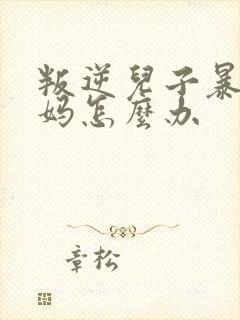 叛逆兒子暴
妈怎麼办
章松